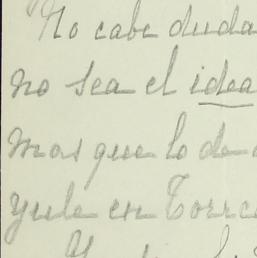 No cabe duda
no sea el idea
mas que lo de
yule en Torre